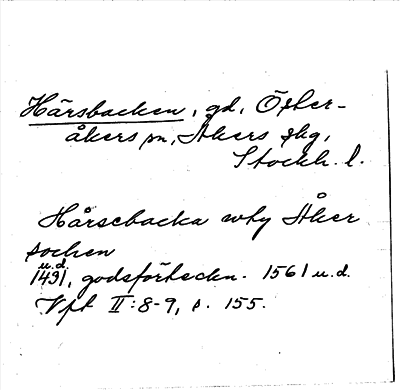 Härsbacken, gd, Öster-
åkers sn, Åkers skg,
Stockh. l.
Hårsebacka why Åker
sochen
u.d.
1491, godsförteckn. 1561 u.d.
Vpt II:8-9, s. 155.